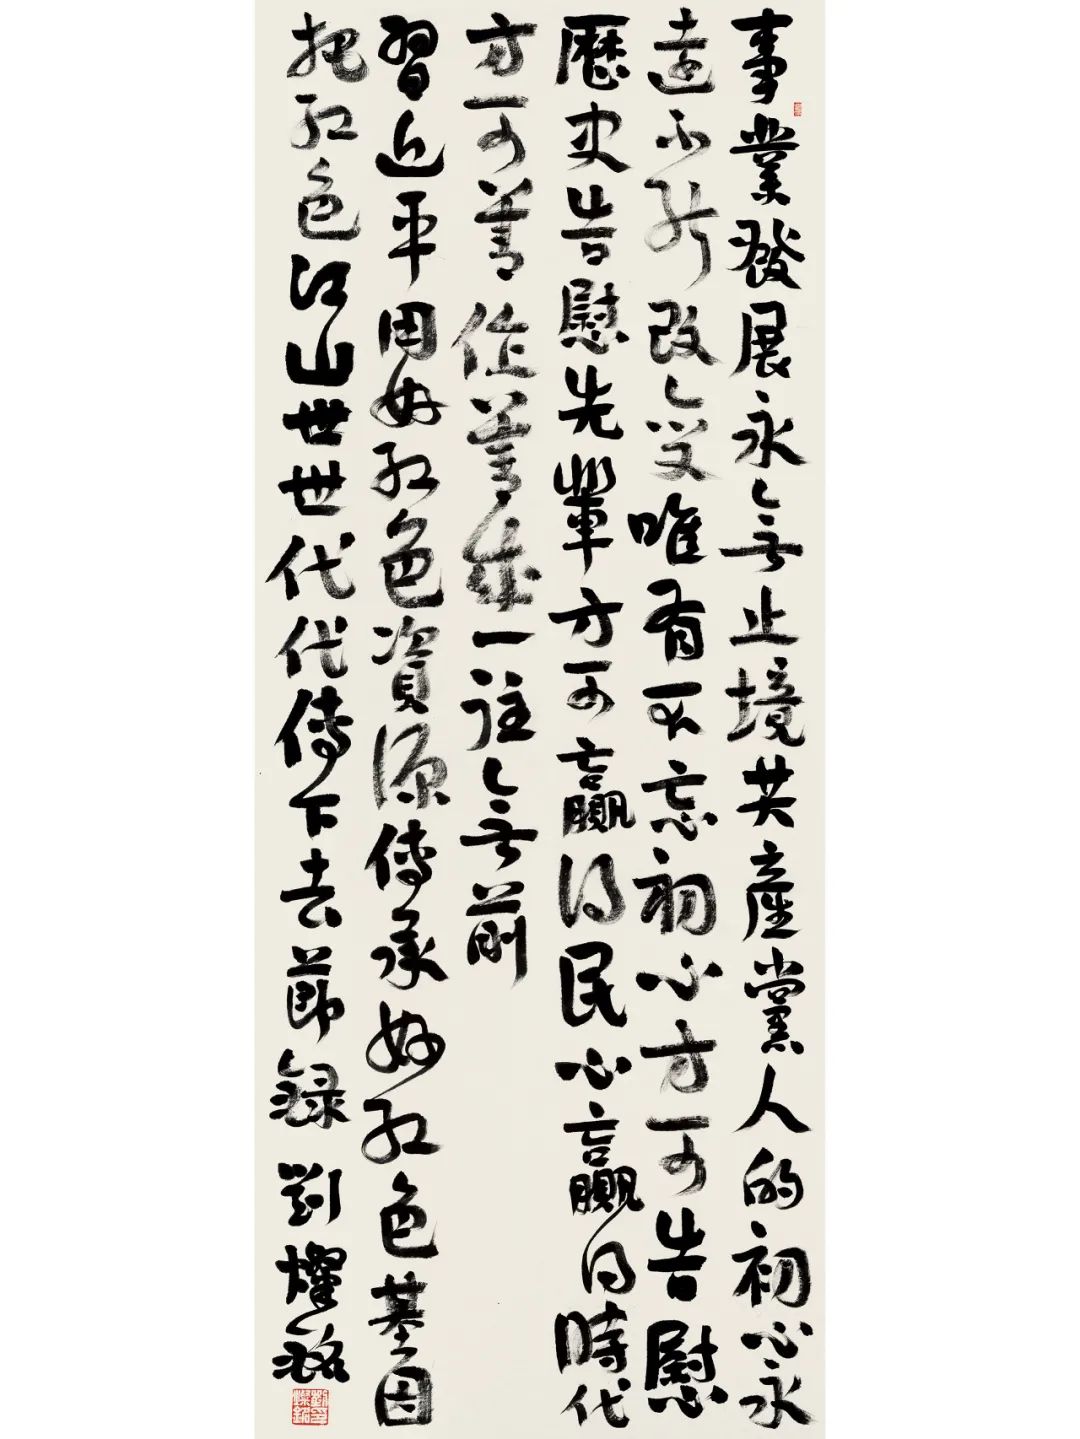 事業發展永無止境共產黨人的初心永
遠不能改變唯有不忘初心方可告慰
歷史告慰先輩方可贏得民心贏得時代
方可善作善成一往無前
習近平用好紅色資源傳承好紅色基因
把紅色江山世世代代傳下去節錄 劉燦銘